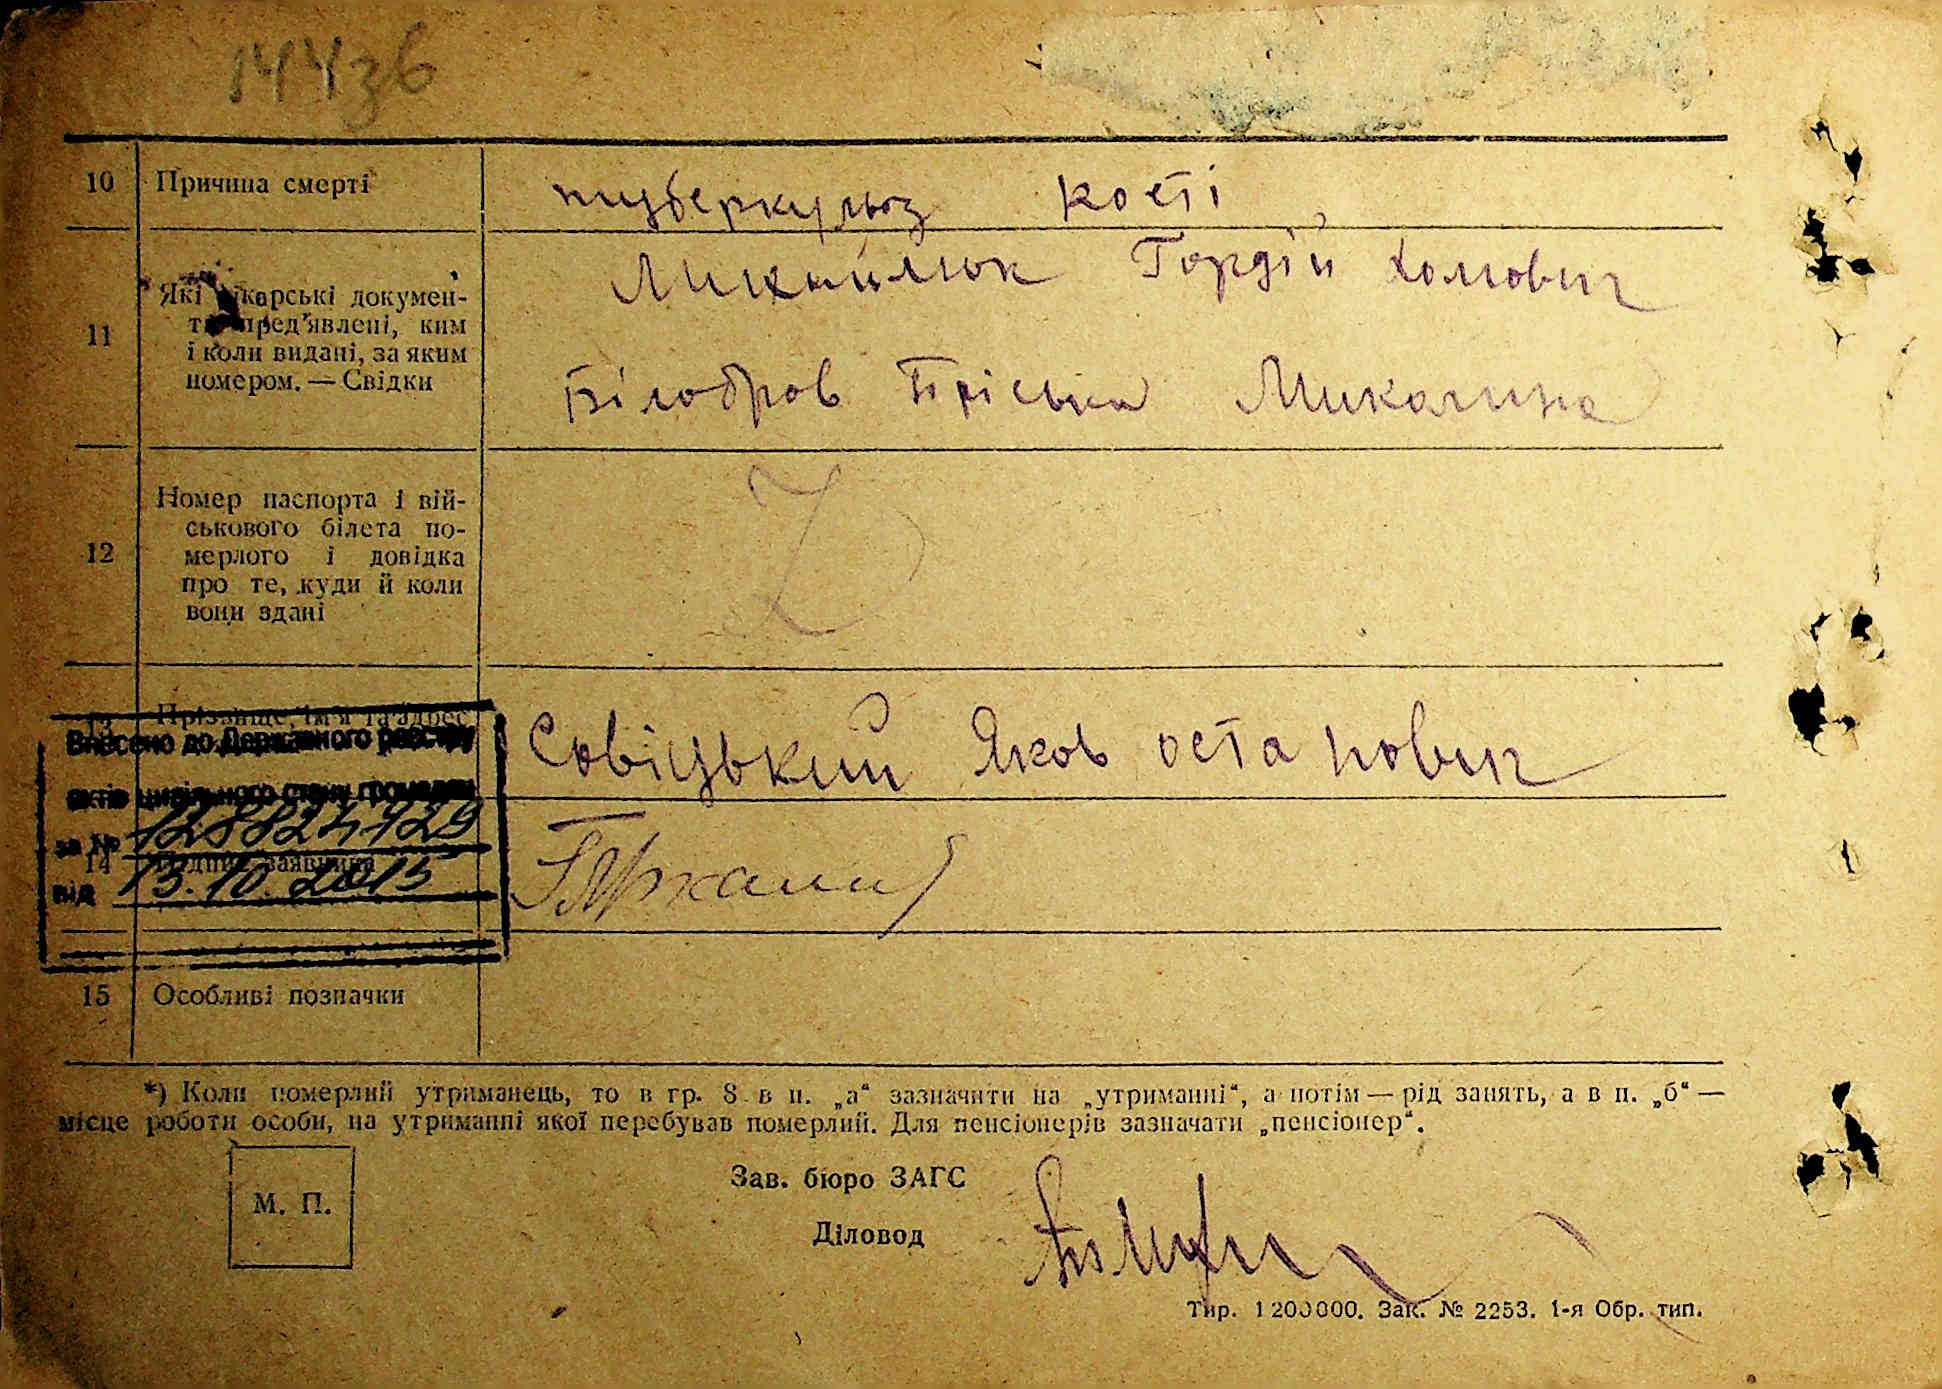 144зв
10 Причина смерті туберкульоз кості
11 Які лікарські документи пред'явлені, ким і коли видані, за яким номером. — Свідки
Михайлюк Гордій Хомович
Білобров Пріська Миколина
12 Номер паспорта і військового білета померлого і довідка про те, куди й коли вони здані
13 Прізвище, ім'я та адрес
Совіцький Яков остапович
Внесено до Державного реєстру
актів цивільного стану громадян
за №
від 13.10.2015
14 Підпис заявника
15 Особливі позначки
*) Коли померлий утриманець, то в гр. 8 в п. „а“ зазначити на „утриманні“, а потім — рід занять, а в п. „б“ —
місце роботи особи, на утриманні якої перебував померлий. Для пенсіонерів зазначати „пенсіонер“.
М. П.
Зав. бюро ЗАГС
Діловод
Тир. 1 200000. Зак. № 2253. 1-я Обр. тип.